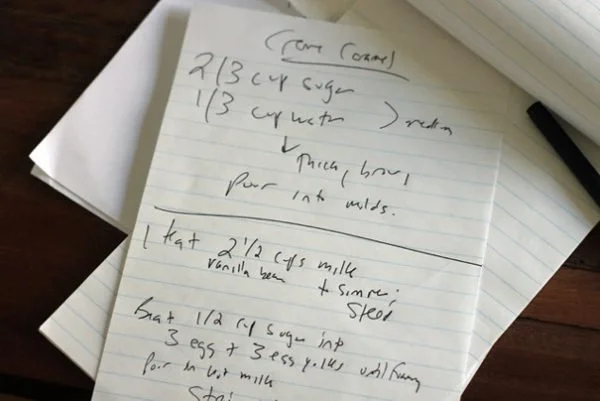 Creme Caramel
2/3 cup sugar
1/3 cup water > medium
thick, brown
Pour into molds.
1 Heat 2 1/2 cups milk
vanilla bean + simmer;
steep
Beat 1/2 cup sugar into
3 egg + 3 egg yolks until foamy
Pour in hot milk